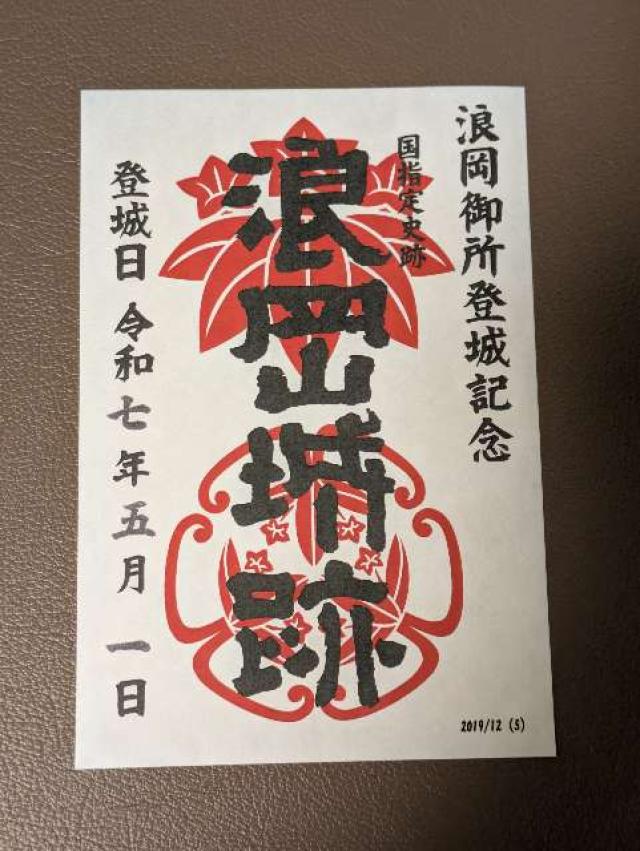 浪岡御所登城記念
国指定史跡
浪岡城跡
登城日 令和七年五月一日
2019/12 (S)